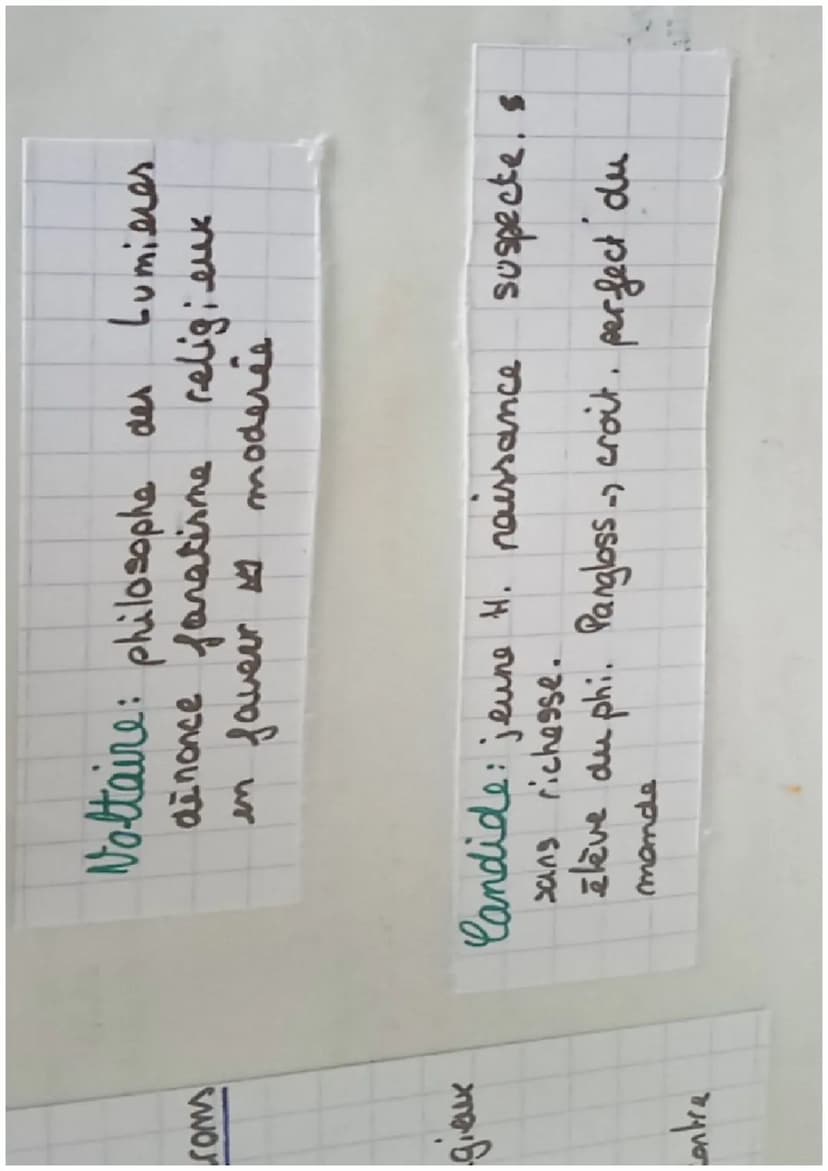 Voltaire: philosophe des Lumières
dénonce fanatisme religieux
en faveur modérée
Candide: jeune H. naissance suspecte. s
sans richesse.
élève du phi. Pangloss → croit. perfect du
monde
roms
gieux
ontre